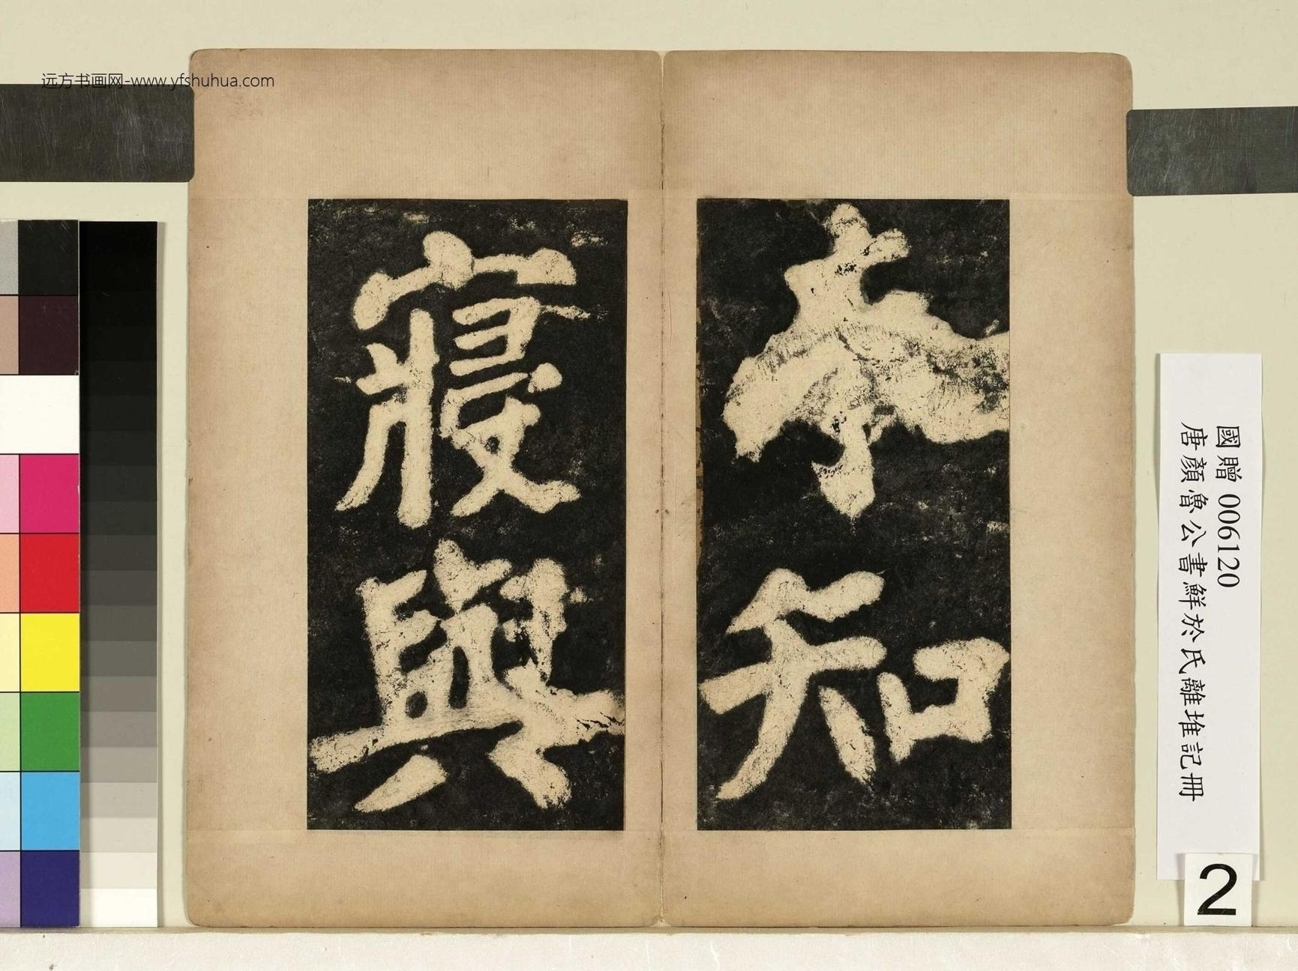 远方书画网-www.yfshuhua.com
知
寢與
國贈 006120
唐顏魯公書鮮於氏離堆記冊
2